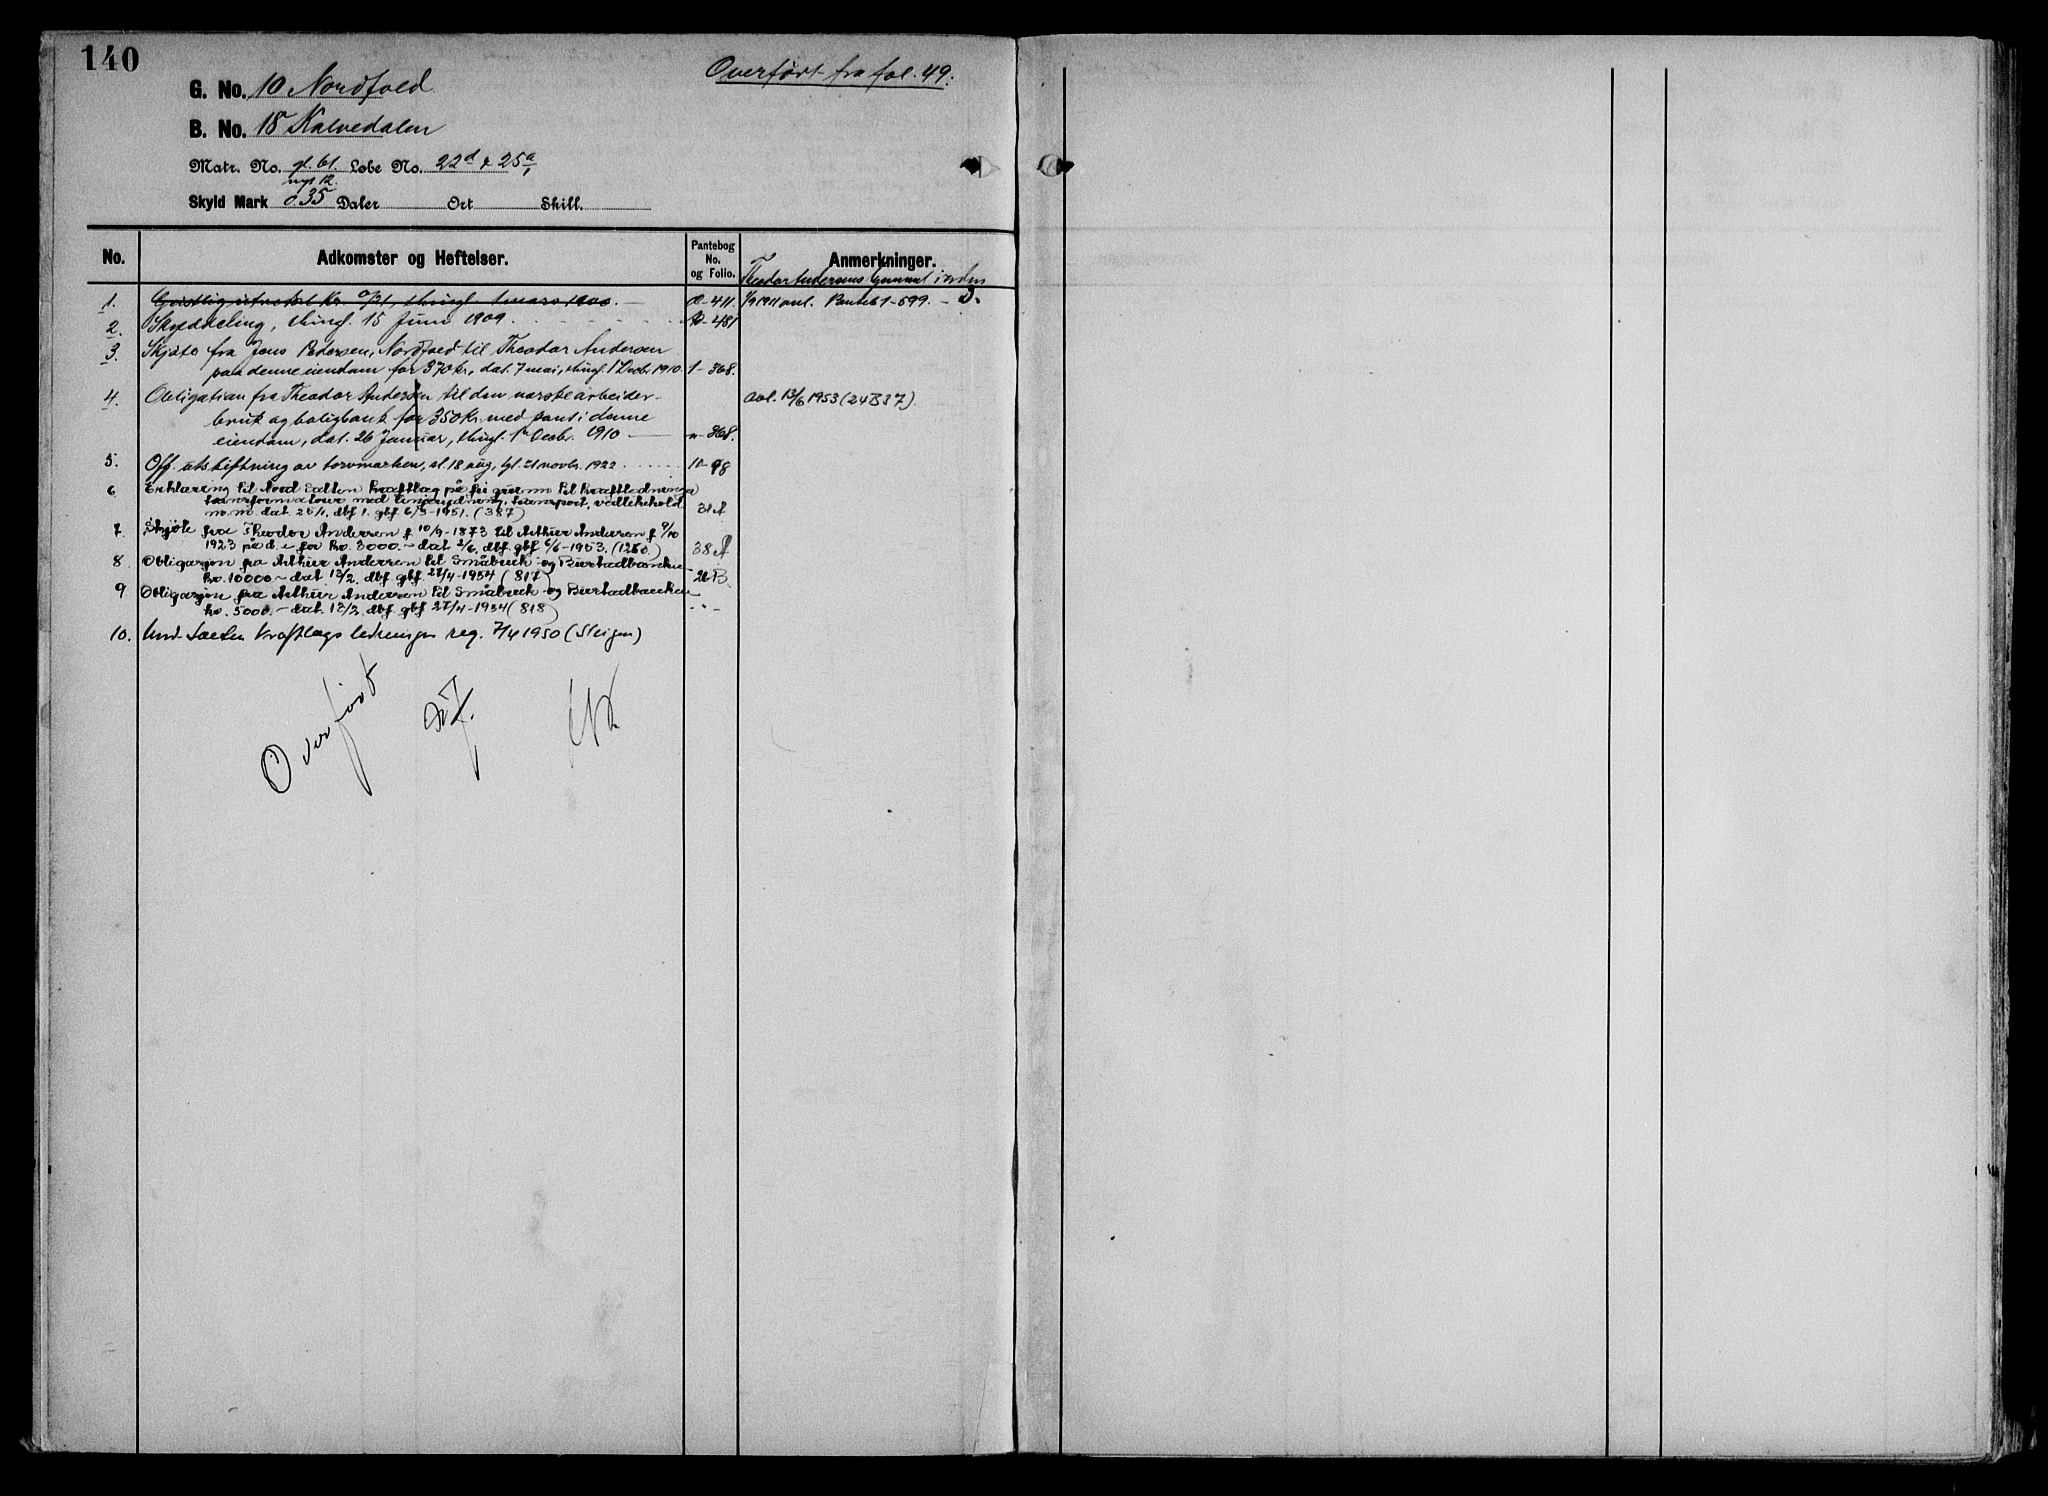 140
Overført fra fol. 49.
G. No. 10 Nordfold
B. No. 18 Kalvedalen
Matr. No. gl. 61. Løbe No. 22d & 25a,
nyt 12.
Skyld Mark 0.35 Daler Ort Skill.
No. Adkomster og Heftelser. Pantebog No. og Folio. Anmerkninger.
Theodor Andersens
1. Kr. thingl. 1 mars 1900. — 411. 1/9 1911 avl. Panteb 1-599. —
2. Skylddeling, thingl. 15 Juni 1909. 481
3. Skjøte fra Jens Pedersen, Nordfold til Theodor Andersen
paa denne eiendom for 370 kr, dat. 7 mai, thingl. 1 Decbr 1910 1-368.
4. Obligation fra Theodor Andersen til den norske arbeider- avl. 13/6 1953 (24B37).
bruk og boligbank for 350 kr. med pant i denne
eiendom, dat. 26 Januar, thingl. 1 Decbr. 1910 — "-368.
5. Off. utskiftning av torvmarken, sl. 18 aug, tgl. 21 novbr. 1922 10-98
6 Erklæring til Nord Salten Kraftlag på fri grunn til kraftledninger
transformatorer med linjerydning, transport, vedlikehold
m.m. dat. 25/1, dbf 1. gbf 6/3-1951. (387) 31A
7. Skjøte fra Theodor Andersen f 10/9-1873 til Arthur Andersen f 9/10
1923 på d. e for kr. 3000.- dat 2/6, dbf. gbf 6/6-1953. (1250) 38A
8. Obligasjon fra Arthur Andersen til Småbruk og Bustadbanken
kr. 10000- dat 13/2, dbf gbf. 27/4-1954 (817) 26B.
9 Obligasjon fra Arthur Andersen til Småbruk og Bustadbanken
kr. 5000.- dat. 13/2. dbf gbf 27/4-1954 (818) - " -
10. Kraftlags ledninger reg. 7/4 1950 (Steigen)
Overført